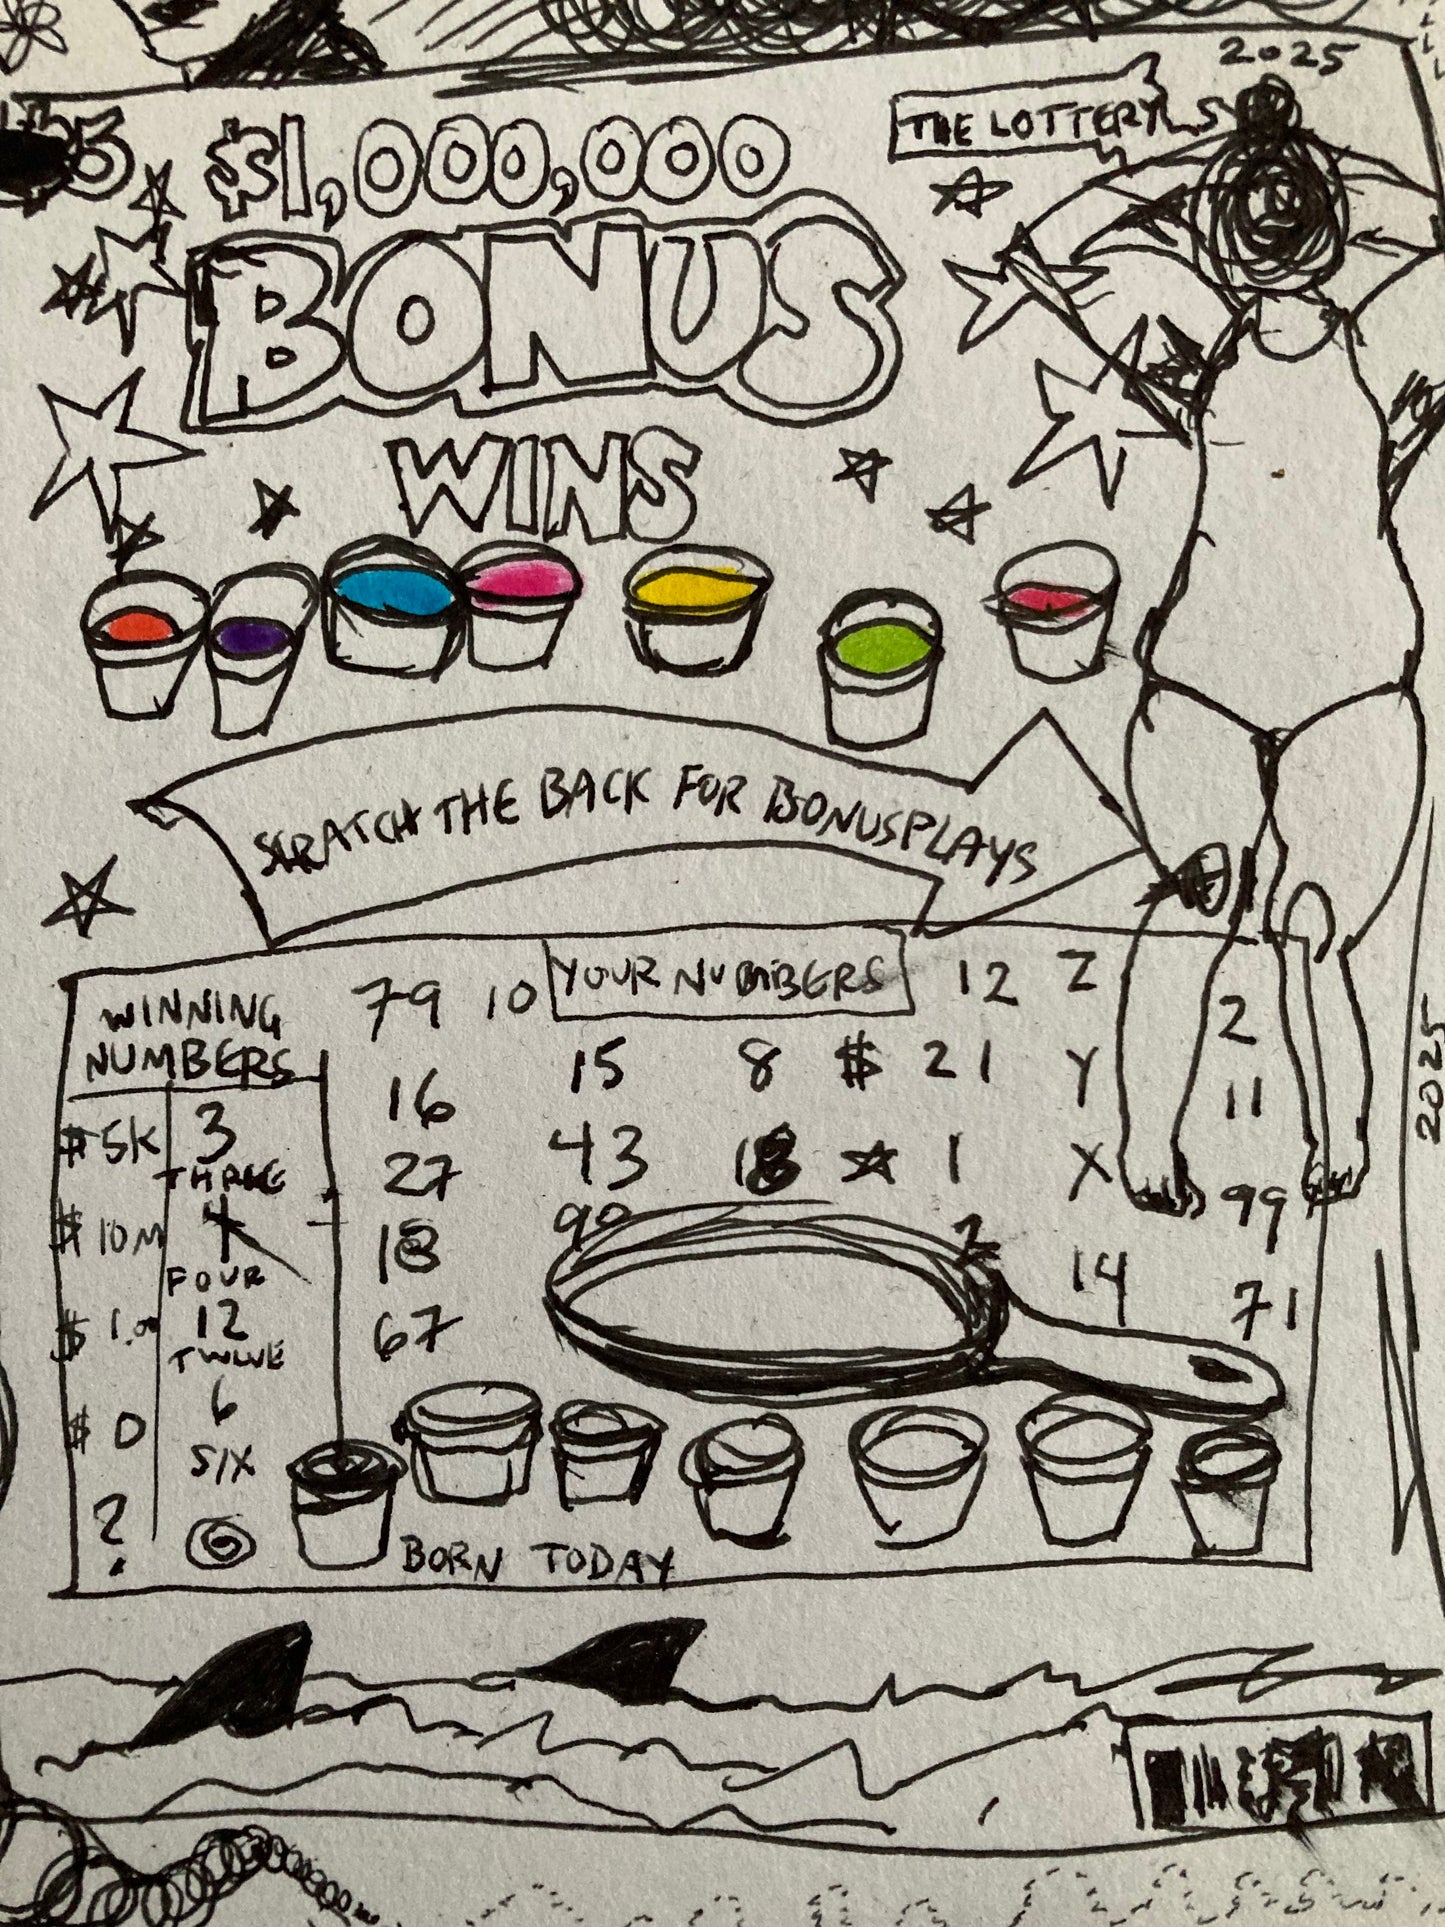 2025
THE LOTTERY
$5
$1,000,000
BONUS
WINS
SCRATCH THE BACK FOR BONUSPLAYS
WINNING
NUMBERS
$5K 3
THREE
$10M 4
FOUR
$1.00 12
TWLVE
$0 6
SIX
?
YOUR NUMBERS
79 10 12 Z 2
16 15 8 $ 21 Y 11
27 43 18 1 X 99
18 99 2 14 71
67
BORN TODAY
2025